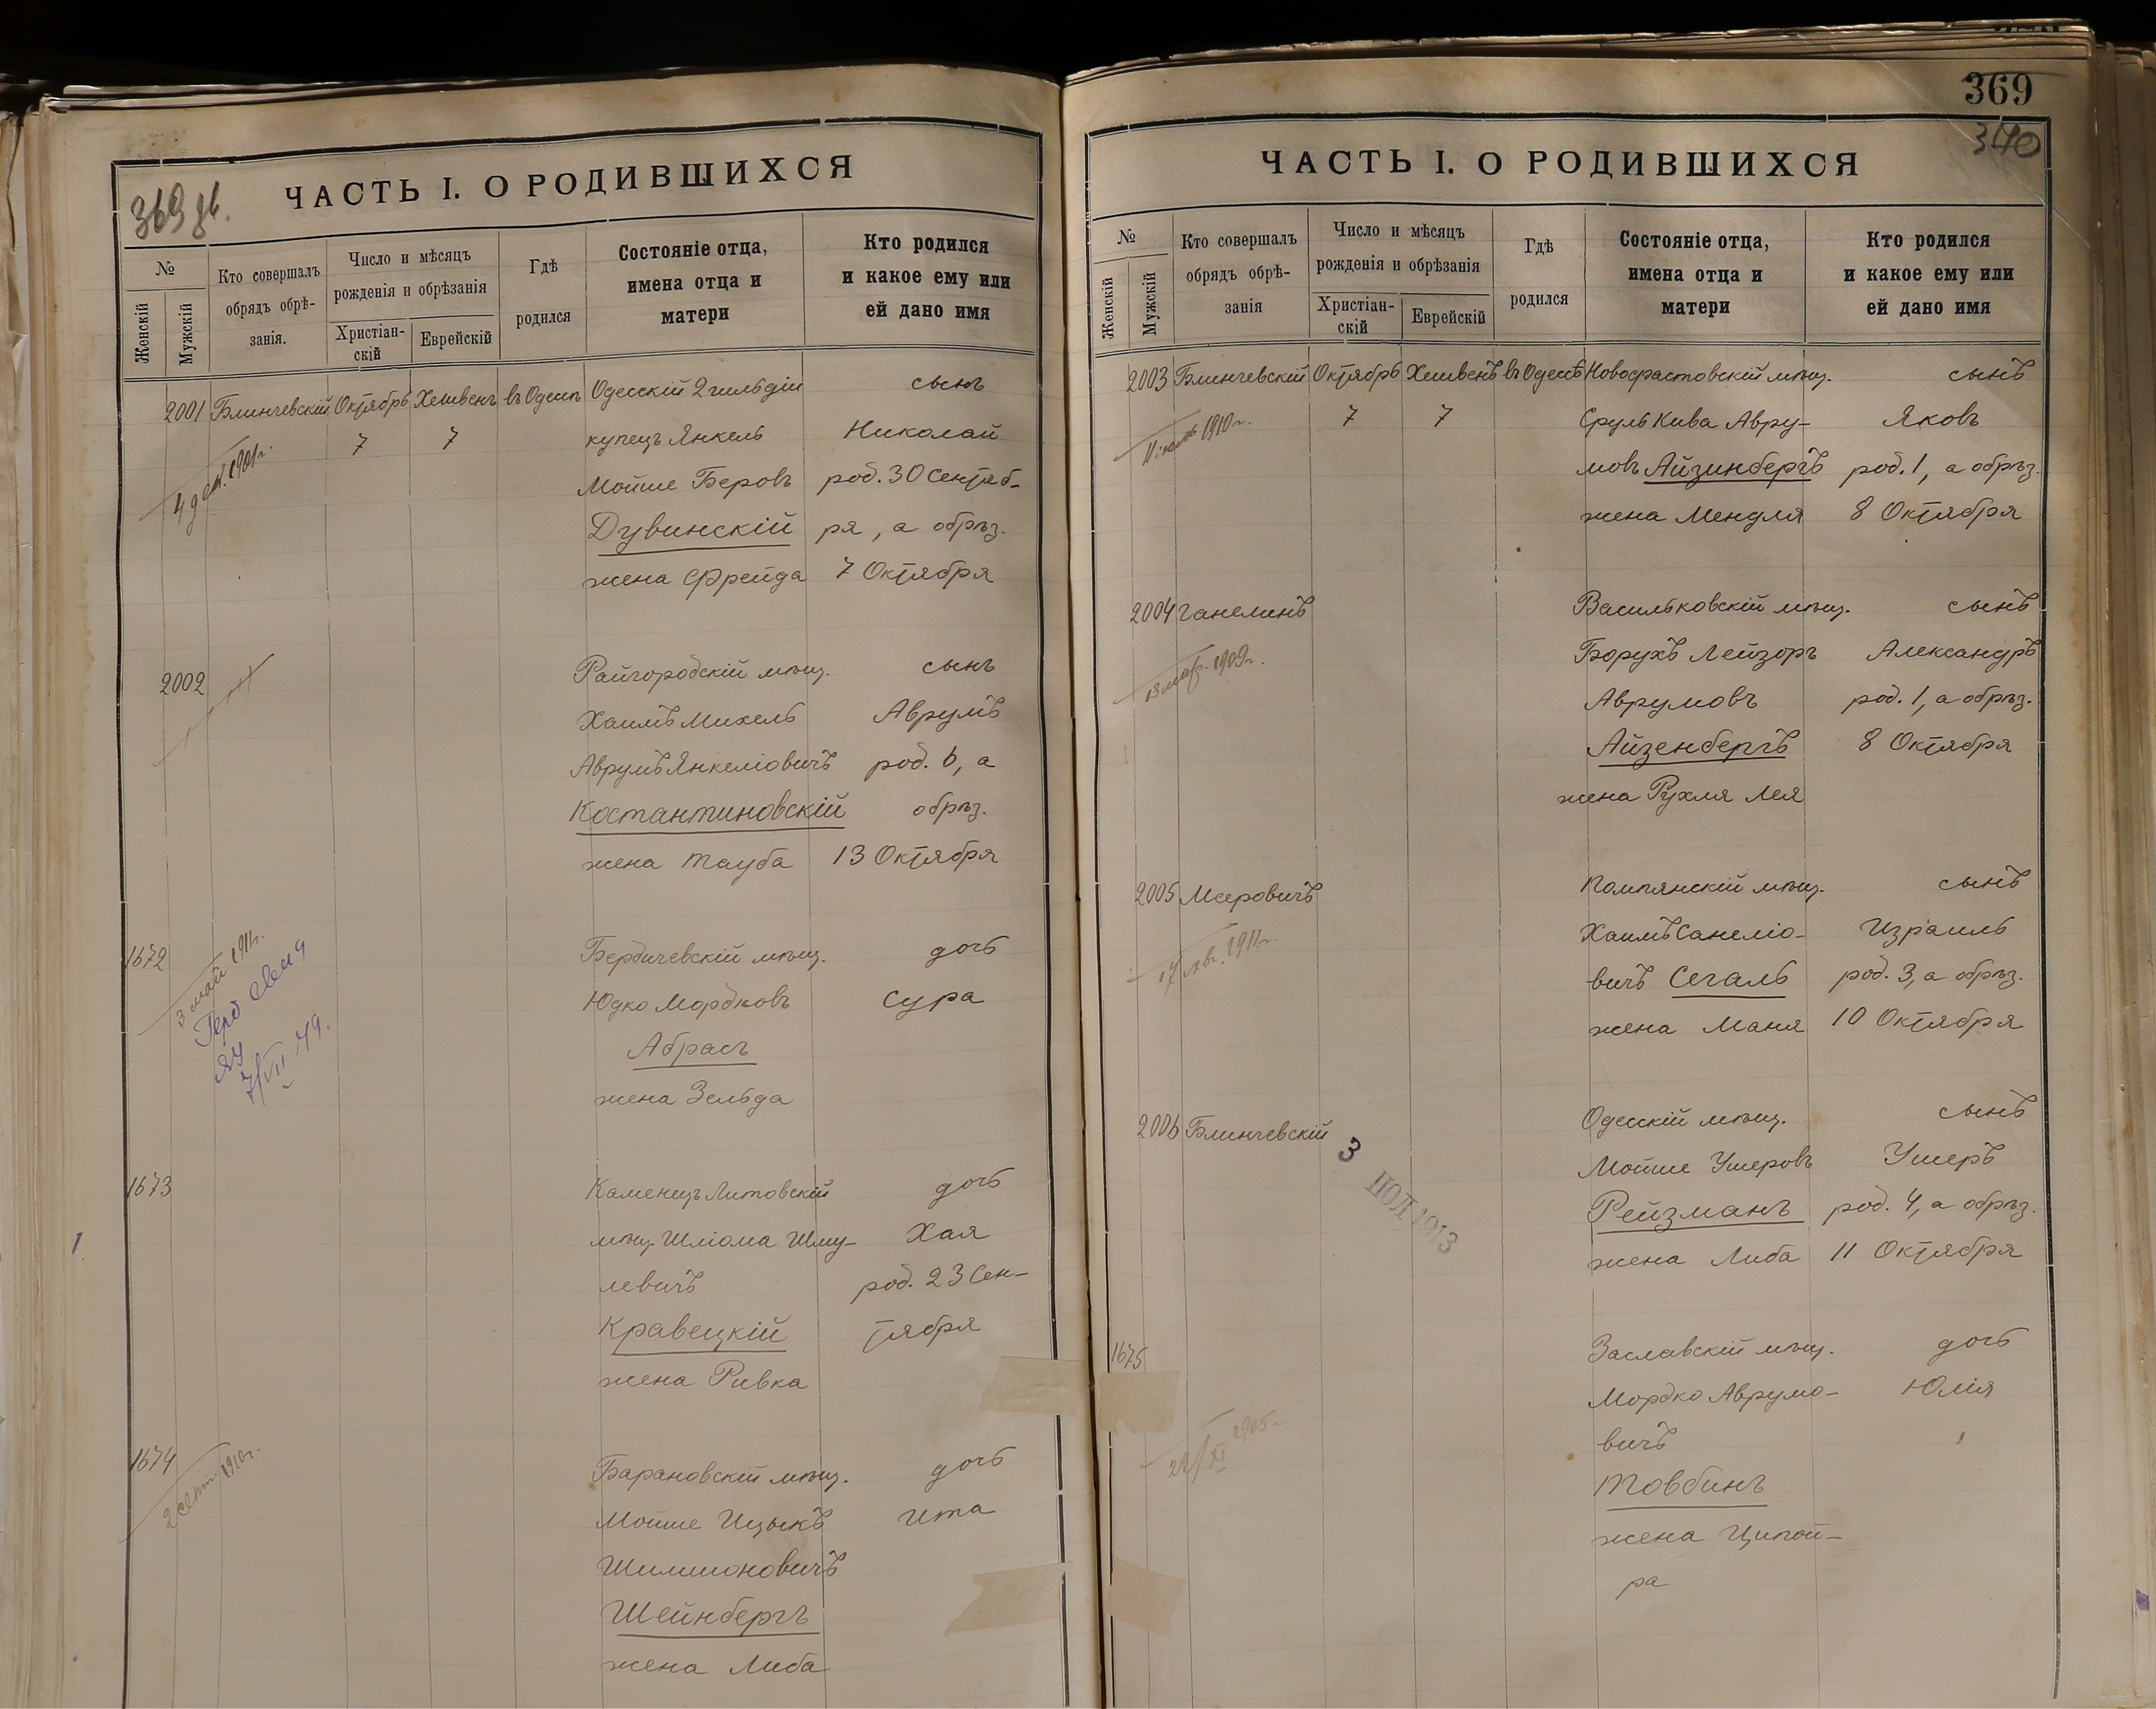 369 зв.
ЧАСТЬ I. О РОДИВШИХСЯ
№
Женскій
Мужскій
Кто совершалъ
обрядъ обрѣ-
занія.
Число и мѣсяцъ
рожденія и обрѣзанія
Христіан-
скій
Еврейскій
Гдѣ
родился
Состояніе отца,
имена отца и
матери
Кто родился
и какое ему или
ей дано имя
2001 Блинчевскій Октябрь Хешвенъ въ Одессѣ Одесскій 2 гильдіи сынъ
7 7 купецъ Янкель Николай
4 дек. 1901г.
Мойше Беровъ род. 30 Сентяб-
Дувинскій ря, а обрѣз.
жена Фрейда 7 Октября
2002 Райгородскій мѣщ. сынъ
Хаимъ Михель Аврумъ
Аврумъ Янкеліовичъ род. 6, а
Костантиновскій обрѣз.
жена Тауба 13 Октября
1672 Бердичевскій мѣщ. дочь
3 мая 1911г.
7/VII 49.
Юдко Мордковъ Сура
Абрасъ
жена Зельда
1673 Каменецъ Литовскій дочь
мѣщ. Шліома Шму- Хая
левичъ род. 23 Сен-
Кравецкій тября
жена Ривка
1674 Барановскій мѣщ. дочь
2 сент. 1910г.
Мойше Ицыкъ Ита
Шимшоновичъ
Шейнбергъ
жена Либа
369
370
ЧАСТЬ I. О РОДИВШИХСЯ
№
Женскій
Мужскій
Кто совершалъ
обрядъ обрѣ-
занія
Число и мѣсяцъ
рожденія и обрѣзанія
Христіан-
скій
Еврейскій
Гдѣ
родился
Состояніе отца,
имена отца и
матери
Кто родился
и какое ему или
ей дано имя
2003 Блинчевскій Октябрь Хешвенъ въ Одессѣ Новофастовскій мѣщ. сынъ
1910г. 7 7 Сруль Кива Авру- Яковъ
мовъ Айзинбергъ род. 1, а обрѣз.
жена Мендля 8 Октября
2004 Ганелинъ Васильковскій мѣщ. сынъ
13 мар. 1909г.
Борухъ Лейзоръ Александръ
Аврумовъ род. 1, а обрѣз.
Айзенбергъ 8 Октября
жена Рухля Лея
2005 Меровичъ Помпянскій мѣщ. сынъ
17 янв. 1911г.
Хаимъ Санеліо- Израиль
вичъ Сегаль род. 3, а обрѣз.
жена Маня 10 Октября
2006 Блинчевскій Одесскій мѣщ. сынъ
3 ІЮЛ 1913
Мойше Ушеровъ Ушеръ
Рейзманъ род. 4, а обрѣз.
жена Либа 11 Октября
1675 Заславскій мѣщ. дочь
Мордко Аврумо- Юлія
вичъ
22/XI 1905г.
Товбинъ
жена Ципой-
ра